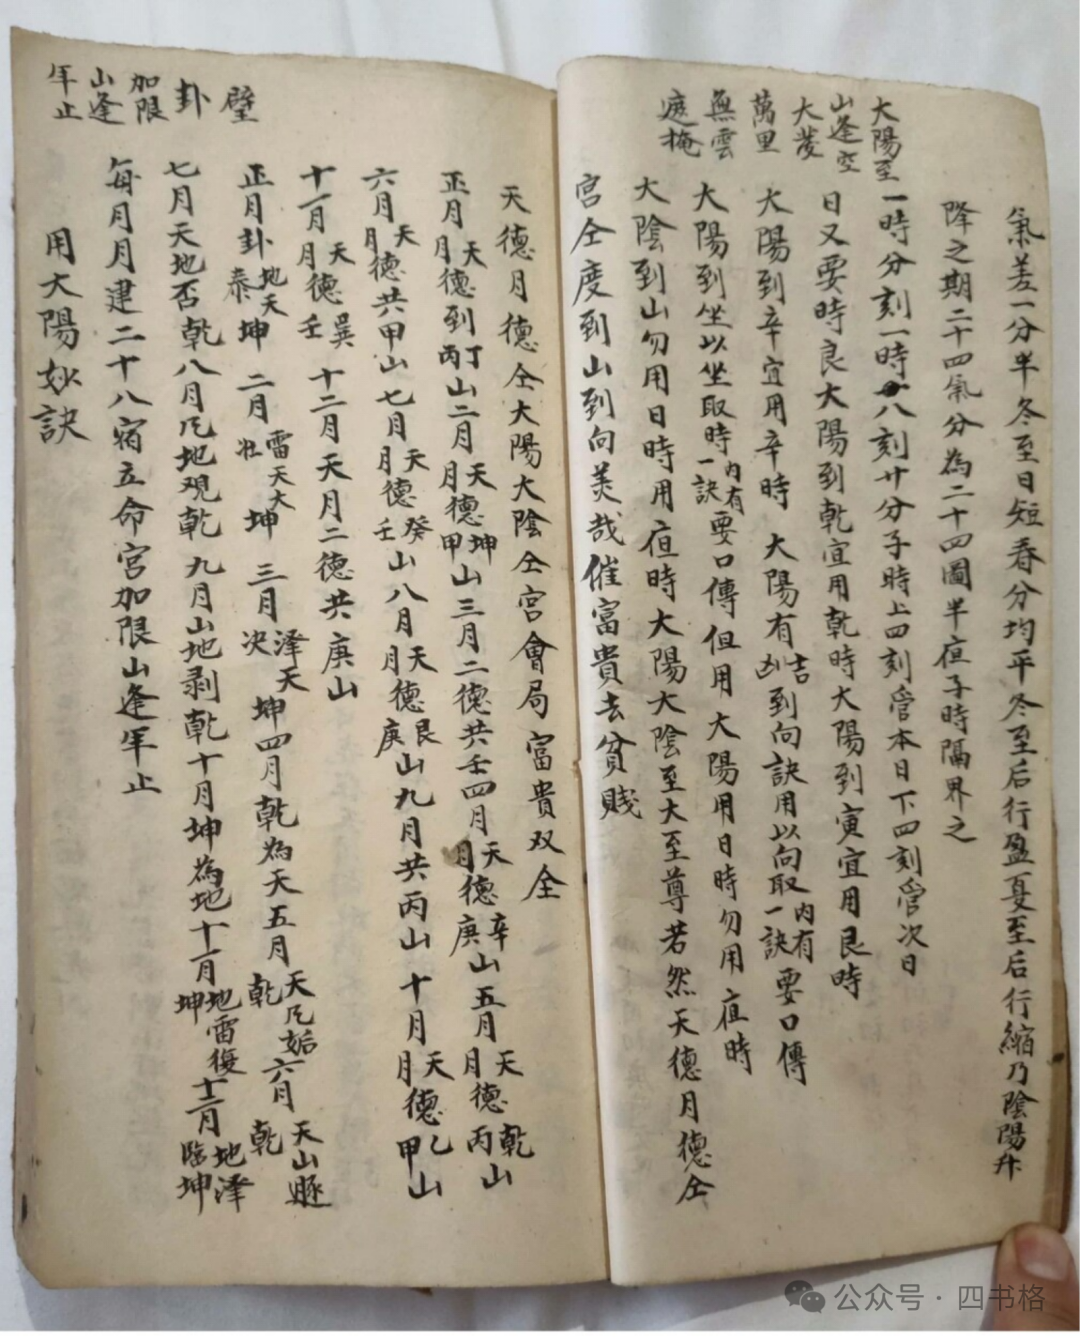 氣差一分半冬至日短春分均平冬至后行盈夏至后行縮乃陰陽升
降之期二十四氣分為二十四圖半𤴓子時隔界之
大陽至
山逢空
大菱
萬里
無雲
遮掩
一時分刻一時八刻廿分子時上四刻管本日下四刻管次日
日又要時良大陽到乾宜用乾時大陽到寅宜用艮時
大陽到辛宜用辛時 大陽有吉凶到向訣用以向取內有一訣要口傳
大陽到坐以坐取時內有一訣要口傳但用大陽用日時勿用夜時
大陰到山勿用日時用夜時大陽大陰至大至尊若然天德月德仝
宮仝度到山到向美哉催富貴去貧賤
天德月德仝大陽大陰仝宮會局富貴双全
正月天月德到丁丙山二月天月德坤甲山三月二德共壬四月天月德辛庚山五月天月德乾丙山
六月天月德共甲山七月天月德癸壬山八月天月德艮庚山九月共丙山十月天月德乙甲山
十一月天月德巽壬 十二月天月二德共庚山
璧
卦
加限
山逢
年止
正月卦地天泰坤 二月雷天大壯坤 三月澤天决坤四月乾為天五月天风姤乾六月天山遯乾
七月天地否乾八月风地观乾九月山地剥乾十月坤為地十一月地雷復坤十二月地澤臨坤
每月月建二十八宿立命宮加限山逢年止
用大陽妙訣
公众号·四书格